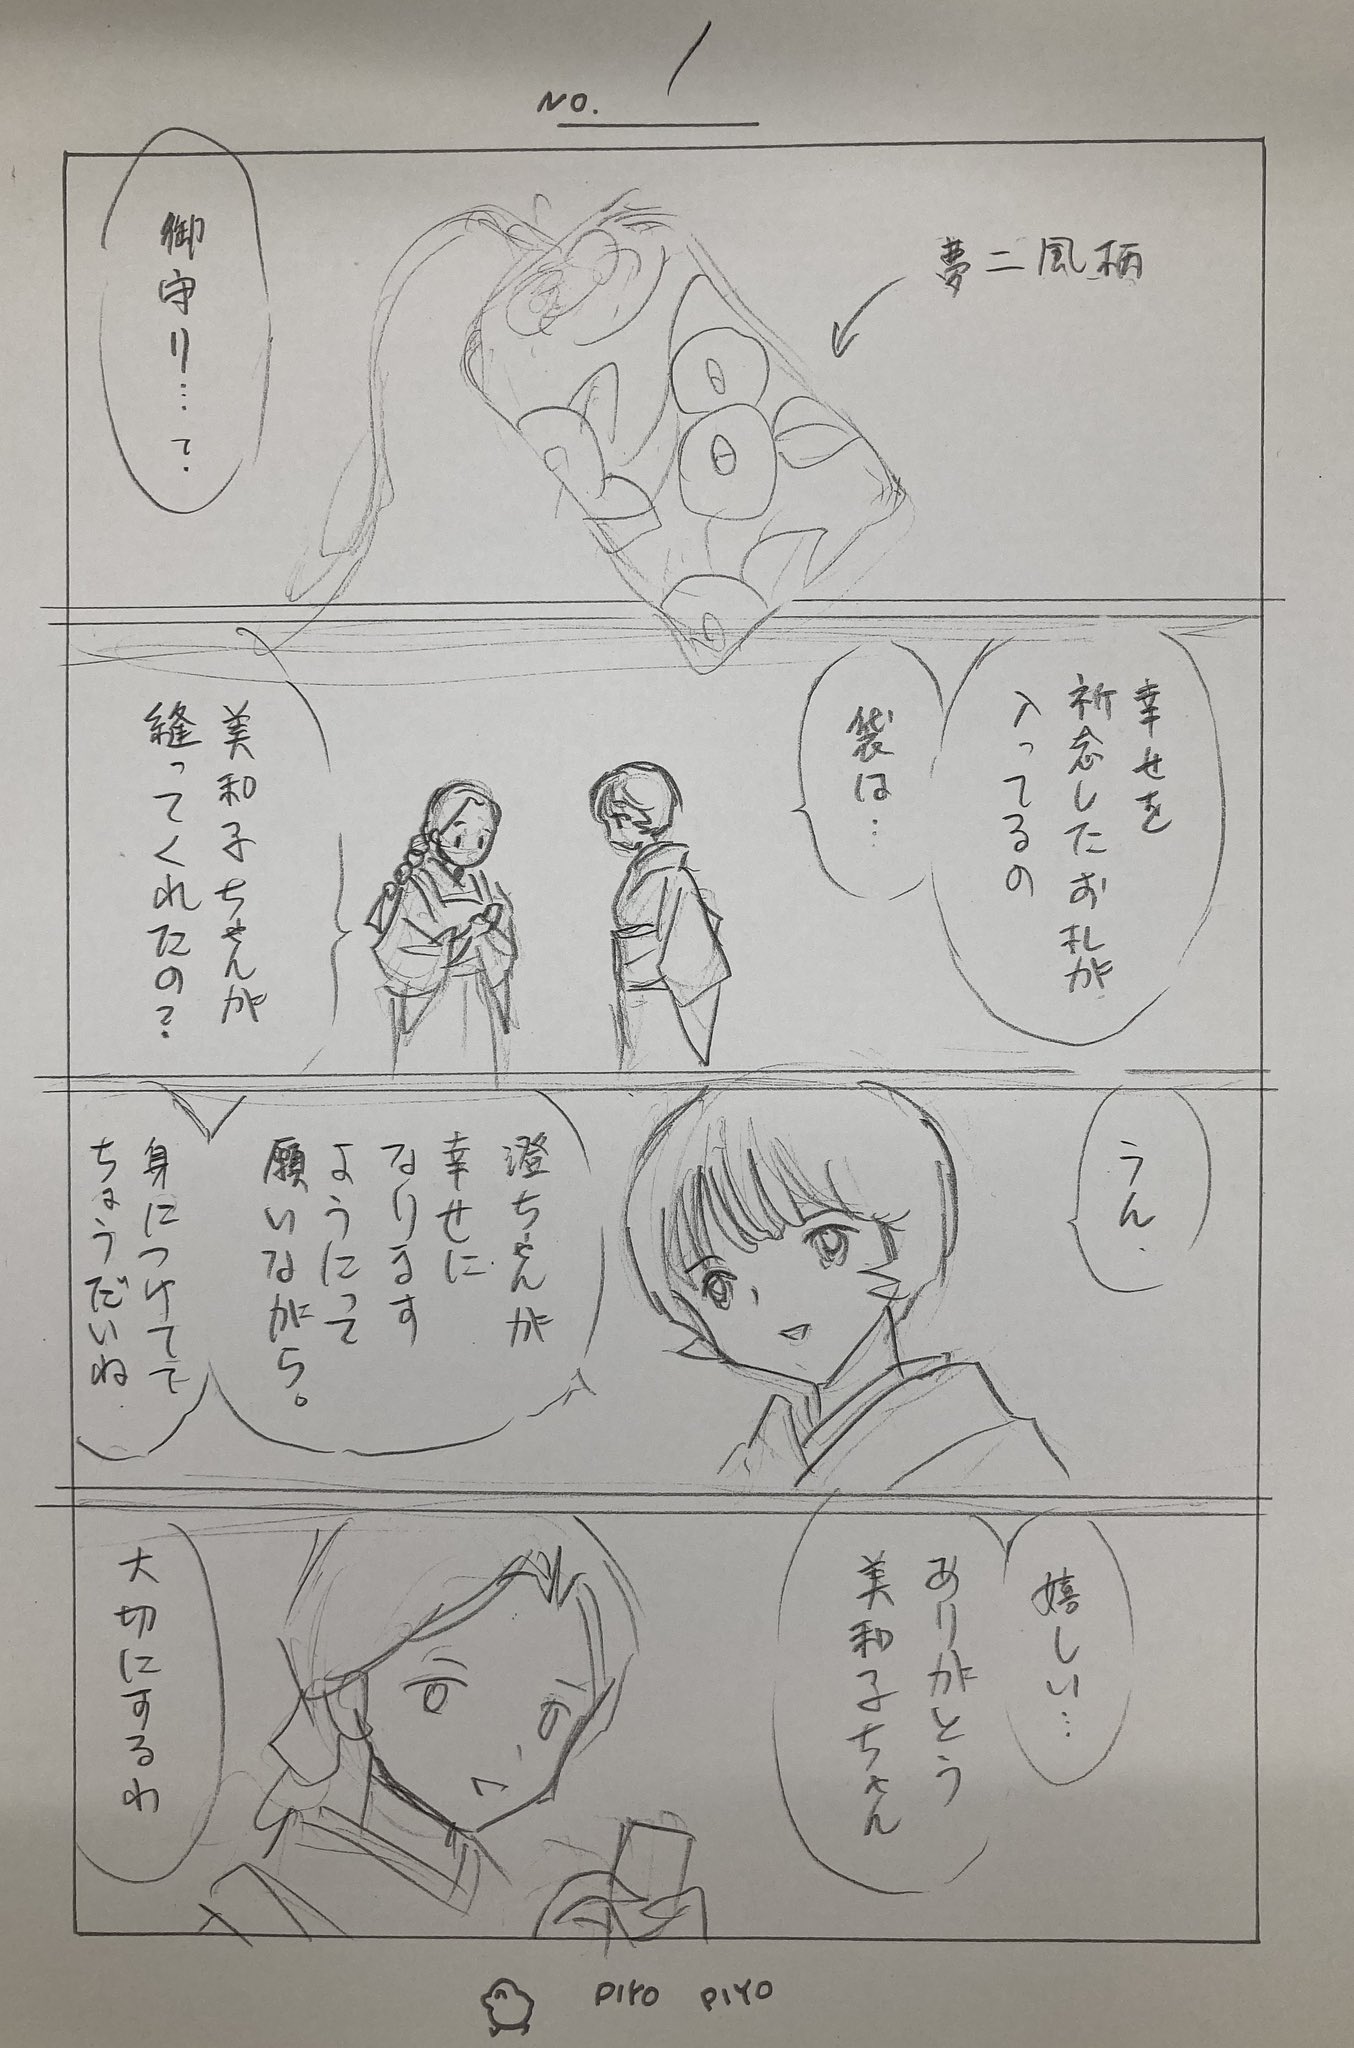 NO. 1
夢二風柄
御守り…て.
幸せを
祈念したお札が
入ってるの
袋は…
美和子ちゃんが
縫ってくれたの?
うん.
澄ちゃんが
幸せに
なります
ようにって
願いながら。
身につけてて
ちょうだいね
嬉しい…
ありがとう
美和子ちゃん
大切にするわ
PIYO PIYO